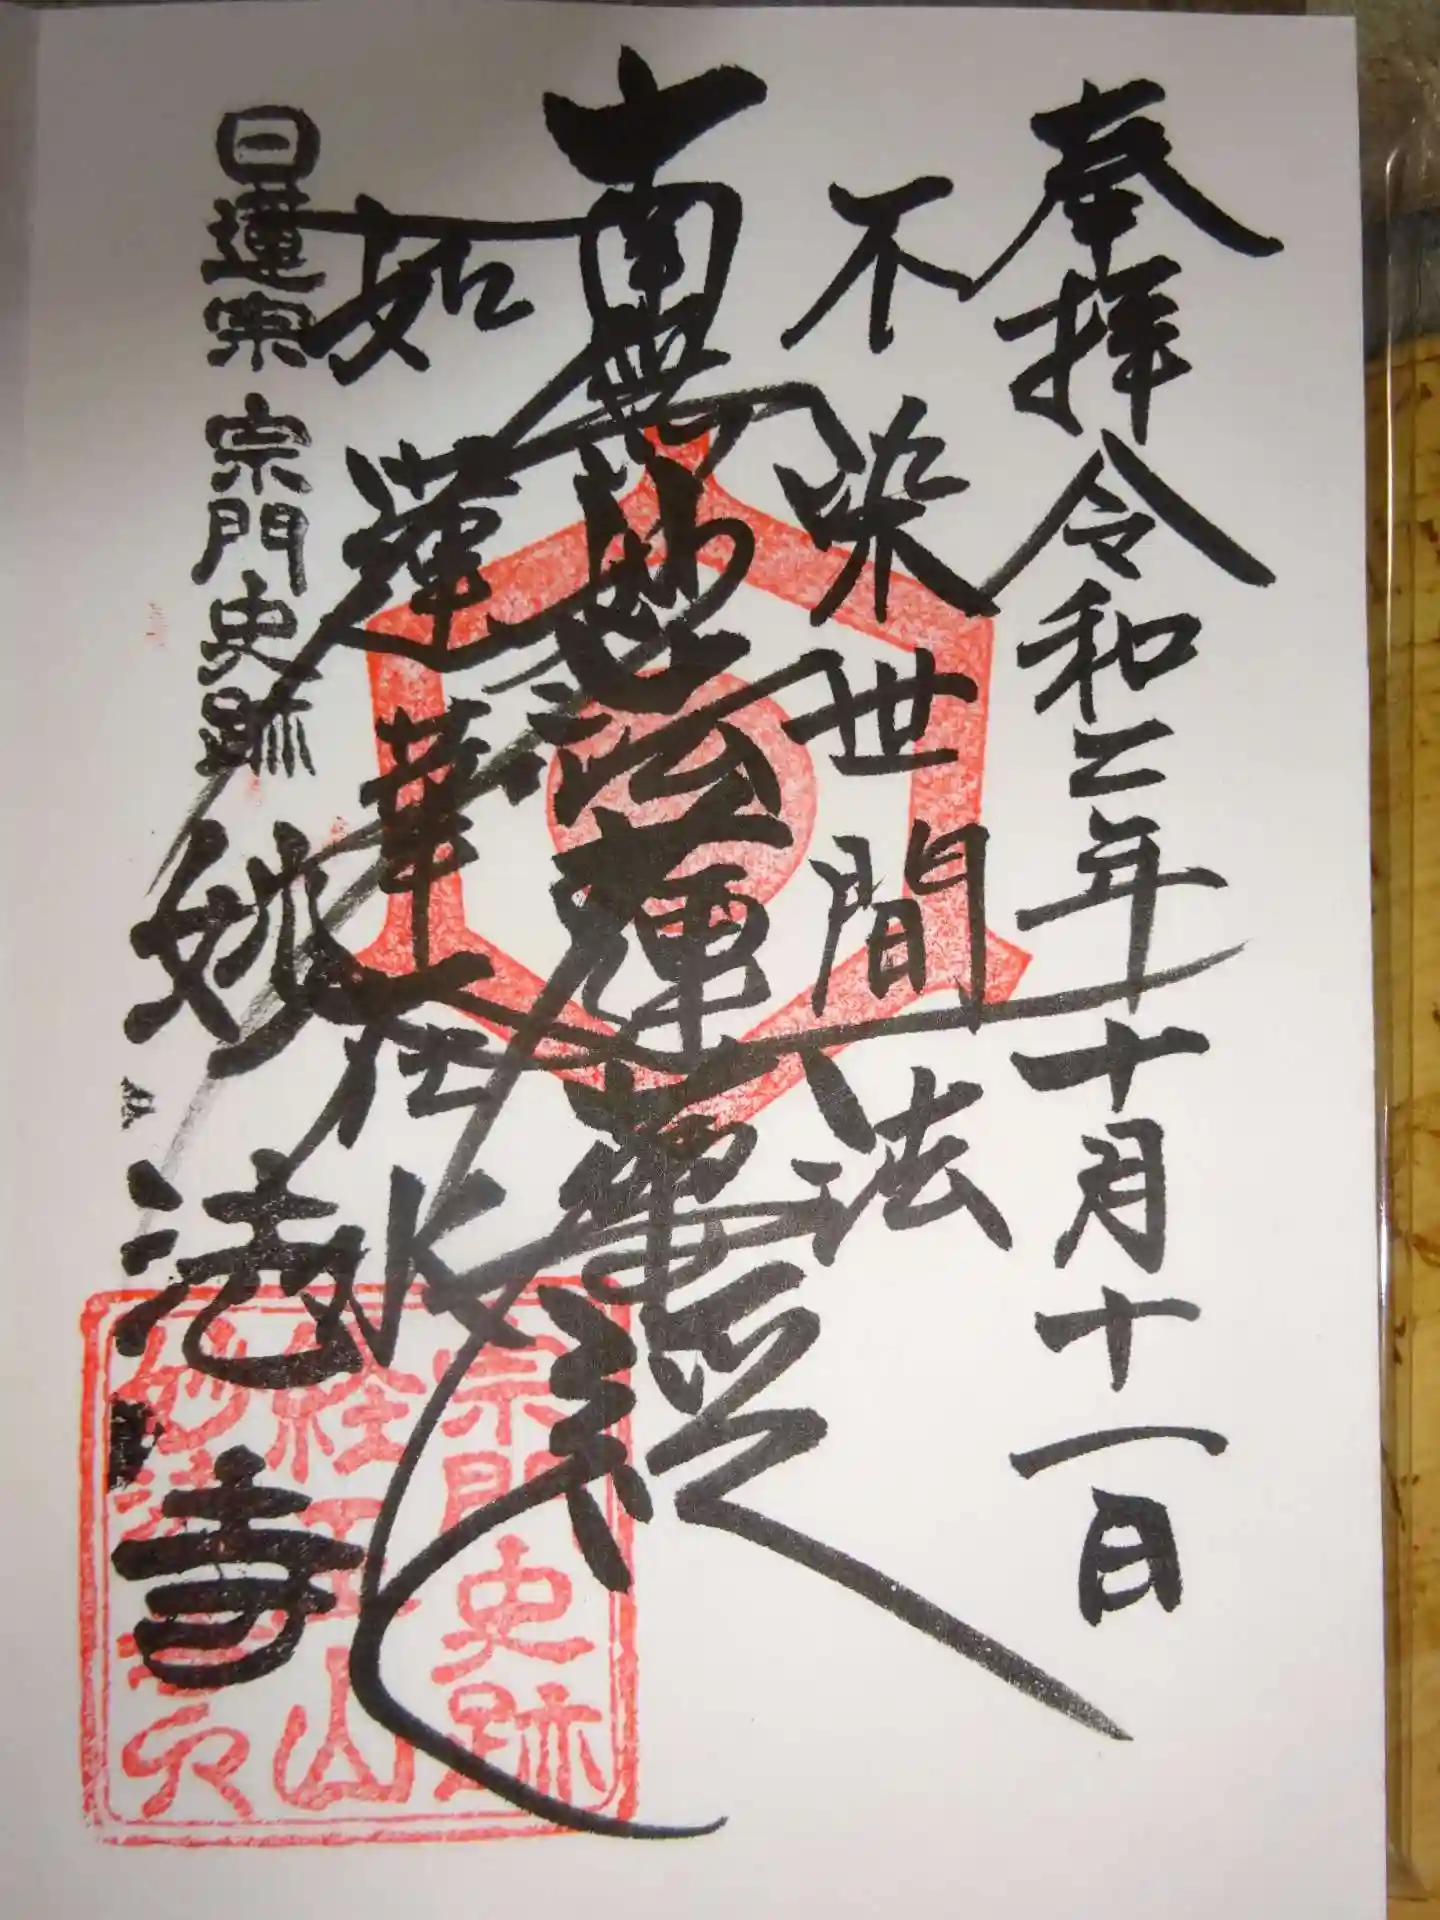 奉拝 令和二年十月十一日
不染世間法
南無妙法蓮華経
如蓮華在水
日蓮宗 宗門史跡
妙法寺
宗門史跡
経王山
妙法寺